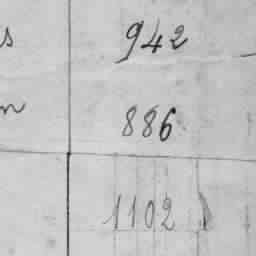 s 942
n 886
1102